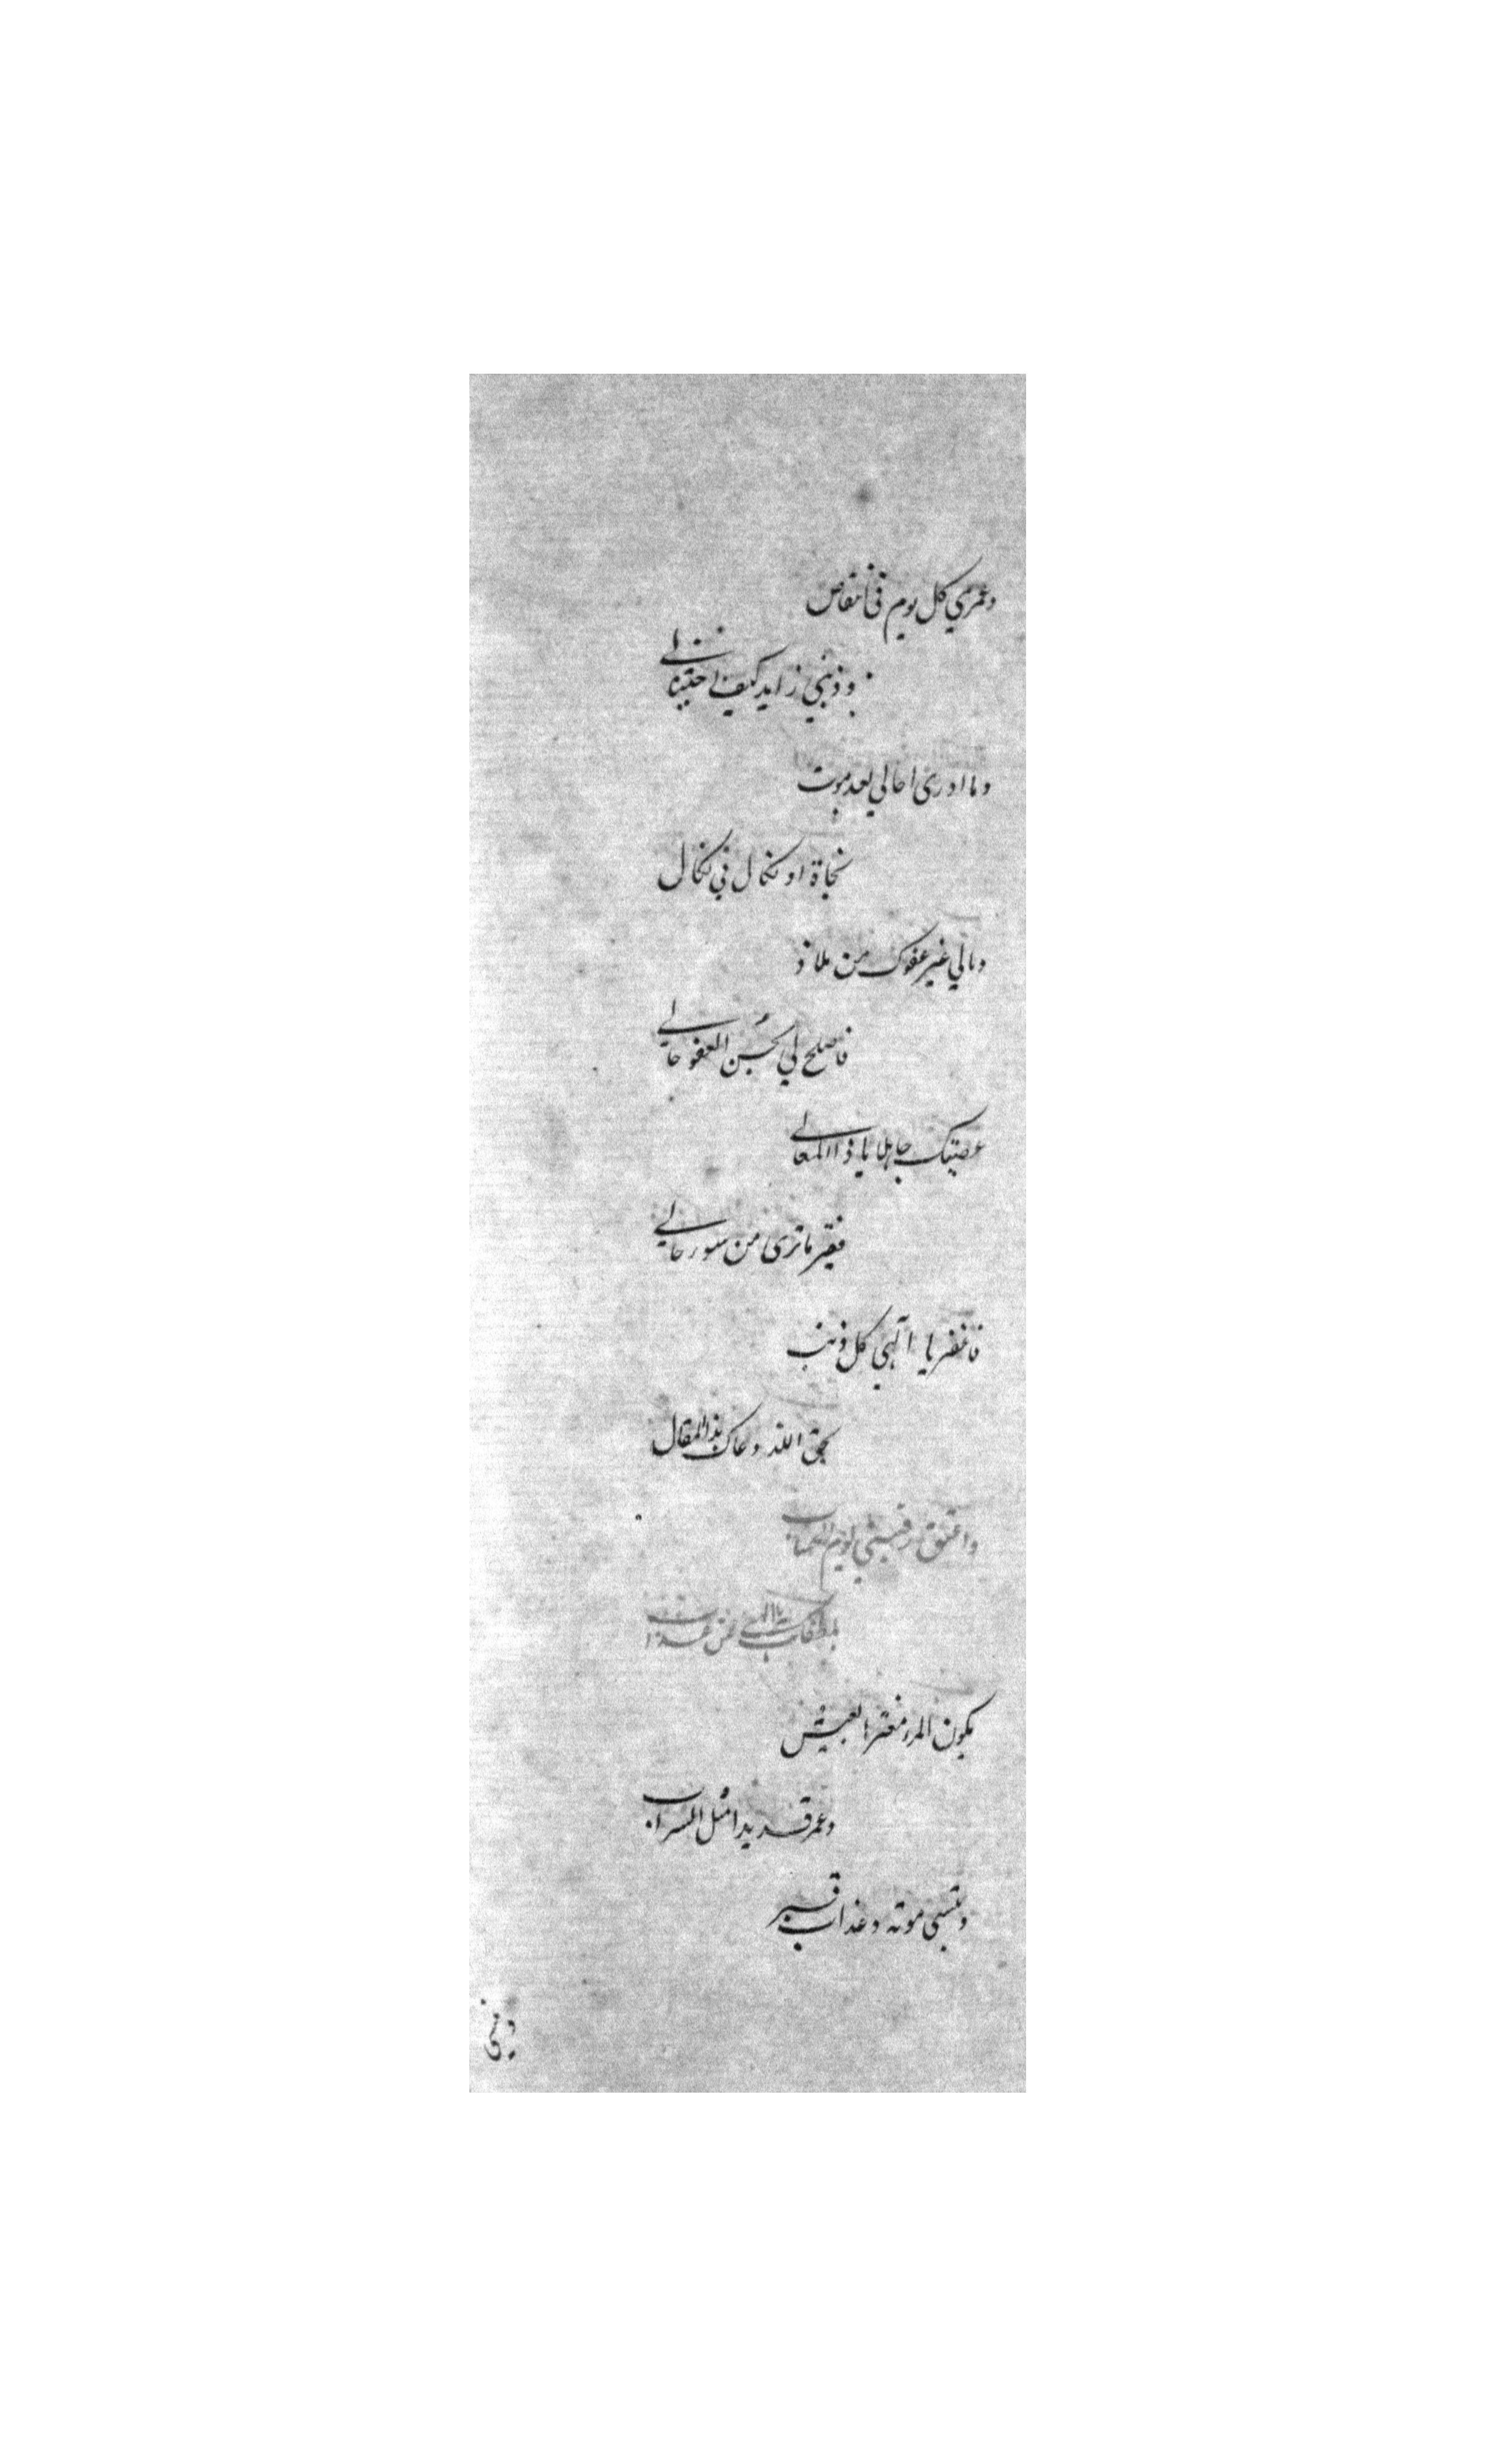 وعمري كل يوم في انتقاص
وذنبي زايد كيف احتيالي
وما ادرى احالي بعد موت
نجاة او نكال في نكال
ومالي غير عفوك من ملاذ
فاصلح لي بحسن العفو حالي
عصيتك جاهلا يا ذا المعالي
فقير ما ترى من سور حالي
فاغفر يا الهي كل ذنب
بحق الذ دعاك بذا المقال
واعتق رقبتي يوم الحساب
بلطفك يا الهي من عذاب
يكون المرء مغترا بعيش
وعمر قد بدا مثل السراب
وينسى موته وعذاب قبر